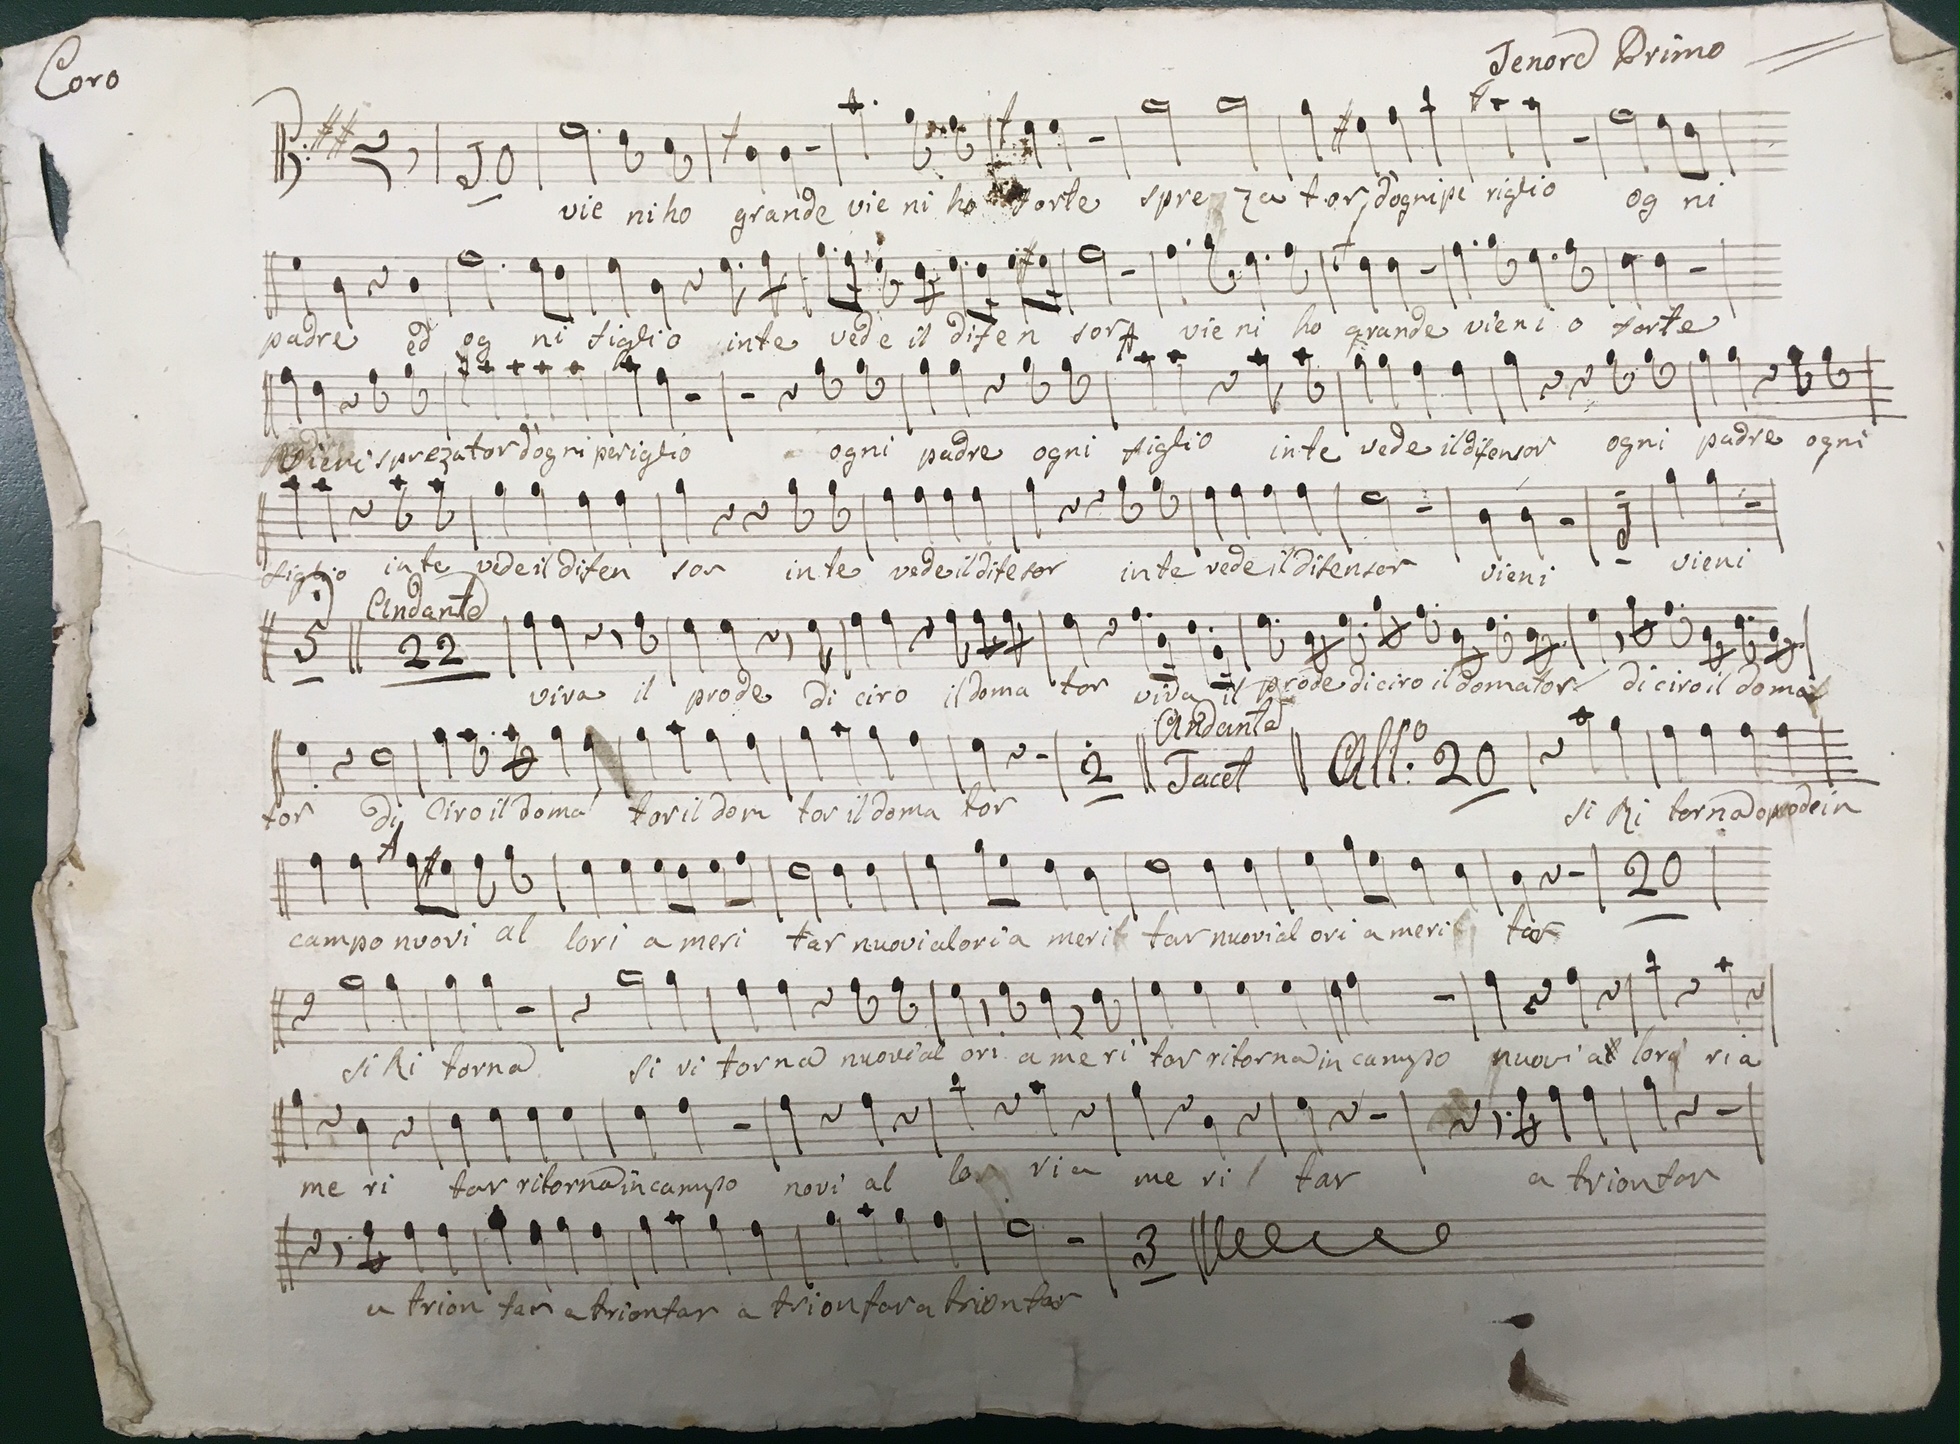 Coro
Tenore Primo
10
vie ni ho grande vie ni ho forte sprezza tor d'ogni pe riglio og ni
padre ed og ni figlio inte vede il difen sor vieni ho grande vieni o forte
Vieni sprezator d'ogni periglio ogni padre ogni figlio inte vede il difensor ogni padre ogni
figlio inte vede il difen sor inte vede il difesor inte vede il difensor vieni 1 vieni
5 Andante 22
viva il prode di ciro il doma tor viva il prode di ciro il domator di ciro il domat
2 Andante Tacet All.o 20
tor di Ciro il doma tor il dom tor il doma tor si Ri torna o prode in
20
campo nuovi al lori a meri tar nuovi alori a merit tar nuovi al ori a merit tar
si Ri torna si ri torna nuovi al ori a meri tar ritorna in campo nuovi al lor ria
me ri tar ritorna in campo novi al lo ria me ri tar a trion tar
3
a trion tar a triontar a triontar a triontar